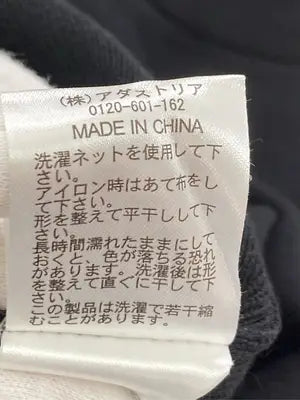 (株)アダストリア
0120-601-162
MADE IN CHINA
洗濯ネットを使用して下
さい。
アイロン時はあて布をし
て下さい。
形を整えて平干しして下
さい。
長時間濡れたままにして
おくと、色が落ちる恐れ
があります。洗濯後は形
を整えて直ぐに干して下
さい。
この製品は洗濯で若干縮
むことがあります。